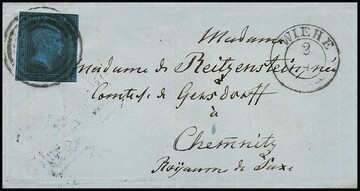 WIEHE
2
Madame
Madame de Reitzenstein, née
Comtesse de Gersdorff
à
Chemnitz
Royaume de Saxe